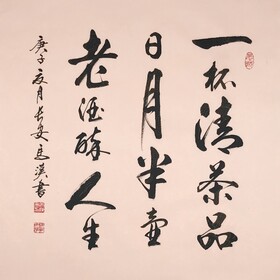 一杯清茶品
日月半壶
老酒醉人生
庚子之夏月长安马汉书